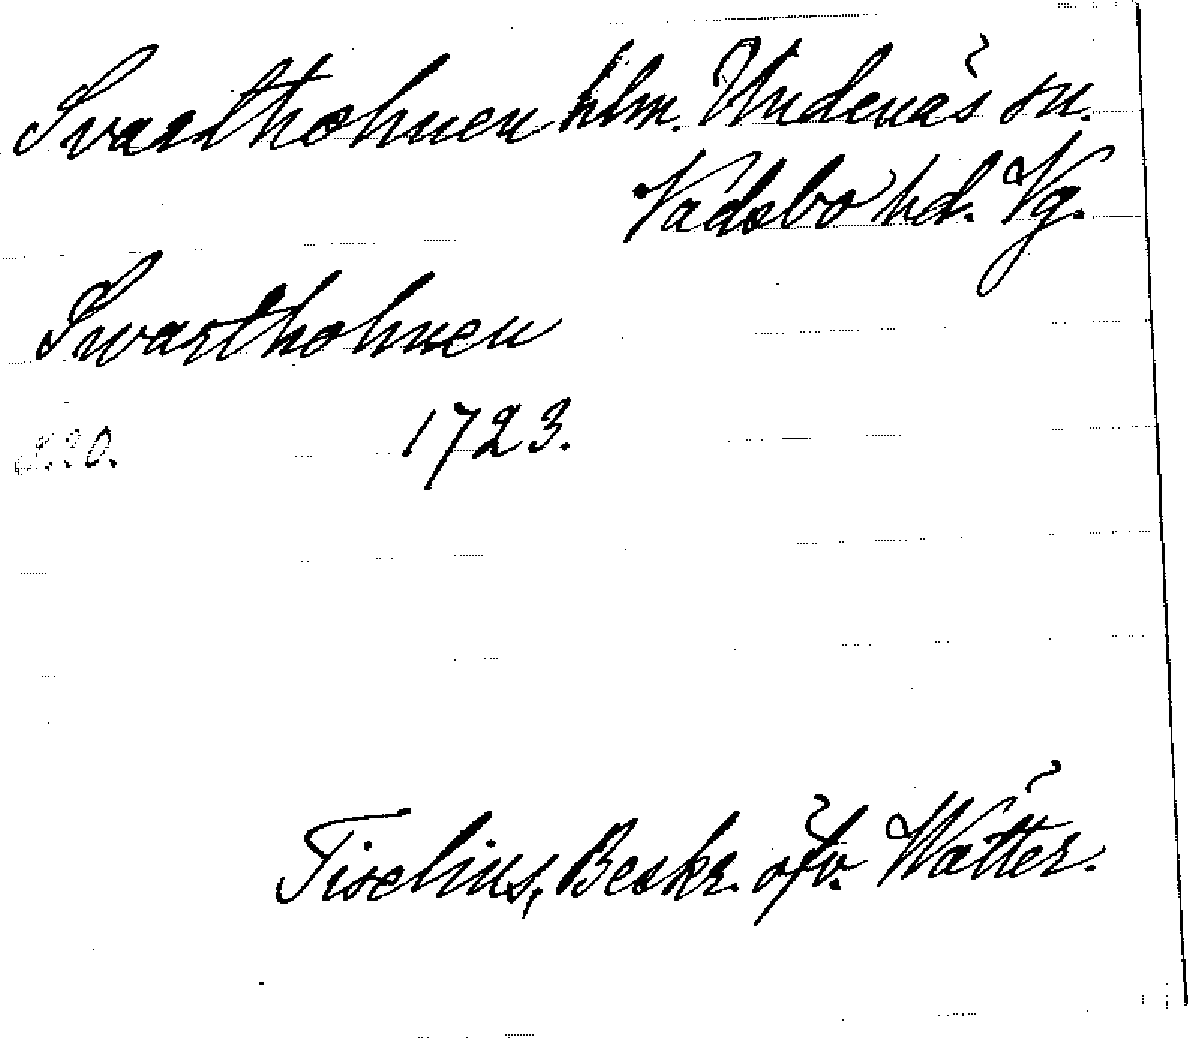 Svartholmen hlm. Undenäs sn.
Vadsbo hd. Vg.
Swartholmen
1723.
s. 20.
Tiselius, Beskr. öfv. Wätter.